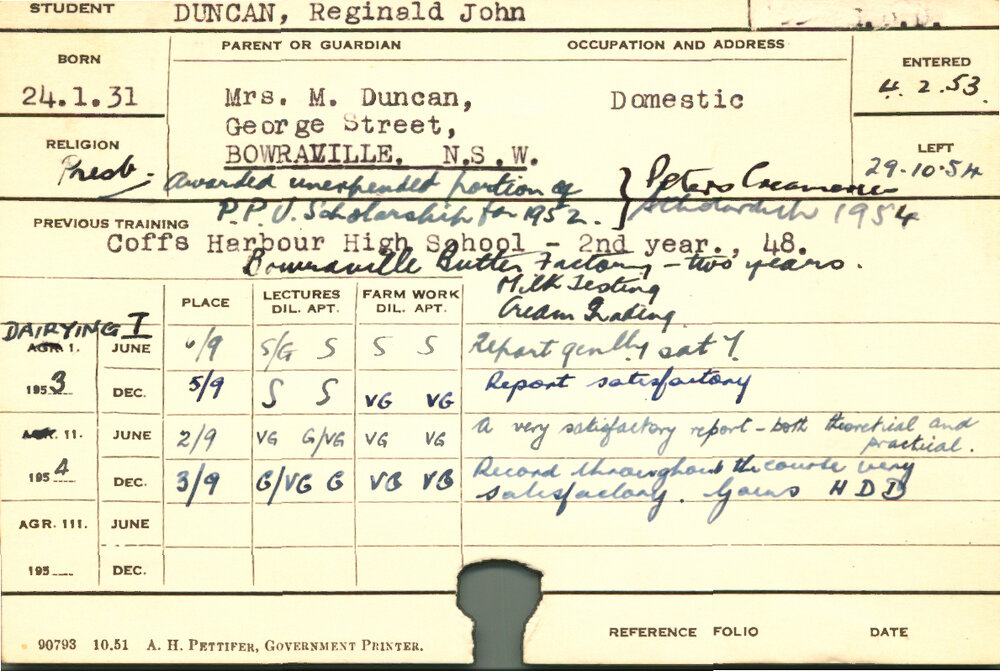 STUDENT DUNCAN, Reginald John
PARENT OR GUARDIAN OCCUPATION AND ADDRESS
BORN ENTERED
24.1.31 Mrs. M. Duncan, Domestic 4.2.53.
George Street,
RELIGION BOWRAVILLE. N.S.W. LEFT
Presb. 29-10-54
Awarded unexpended portion of } Peters Creameries
P.P.U. Scholarship for 1952. } 1954
PREVIOUS TRAINING
Coffs Harbour High School - 2nd year., 48.
Bowraville Butter Factory - two years.
Milk Testing
Cream Grading
PLACE LECTURES DIL. APT. FARM WORK DIL. APT.
DAIRYING I
AGR 1. JUNE /9 S/G S S S Report genlly sat y.
1953 DEC. 5/9 S S VG VG Report satisfactory
AGR. 11. JUNE 2/9 VG G/VG VG VG A very satisfactory report - both theoretical and
practical.
1954 DEC. 3/9 G/VG G VG VG Record throughout the course very
satisfactory. Gains H D D
AGR. 111. JUNE
195 DEC.
REFERENCE FOLIO DATE
90793 10.51 A. H. PETTIFER, GOVERNMENT PRINTER.